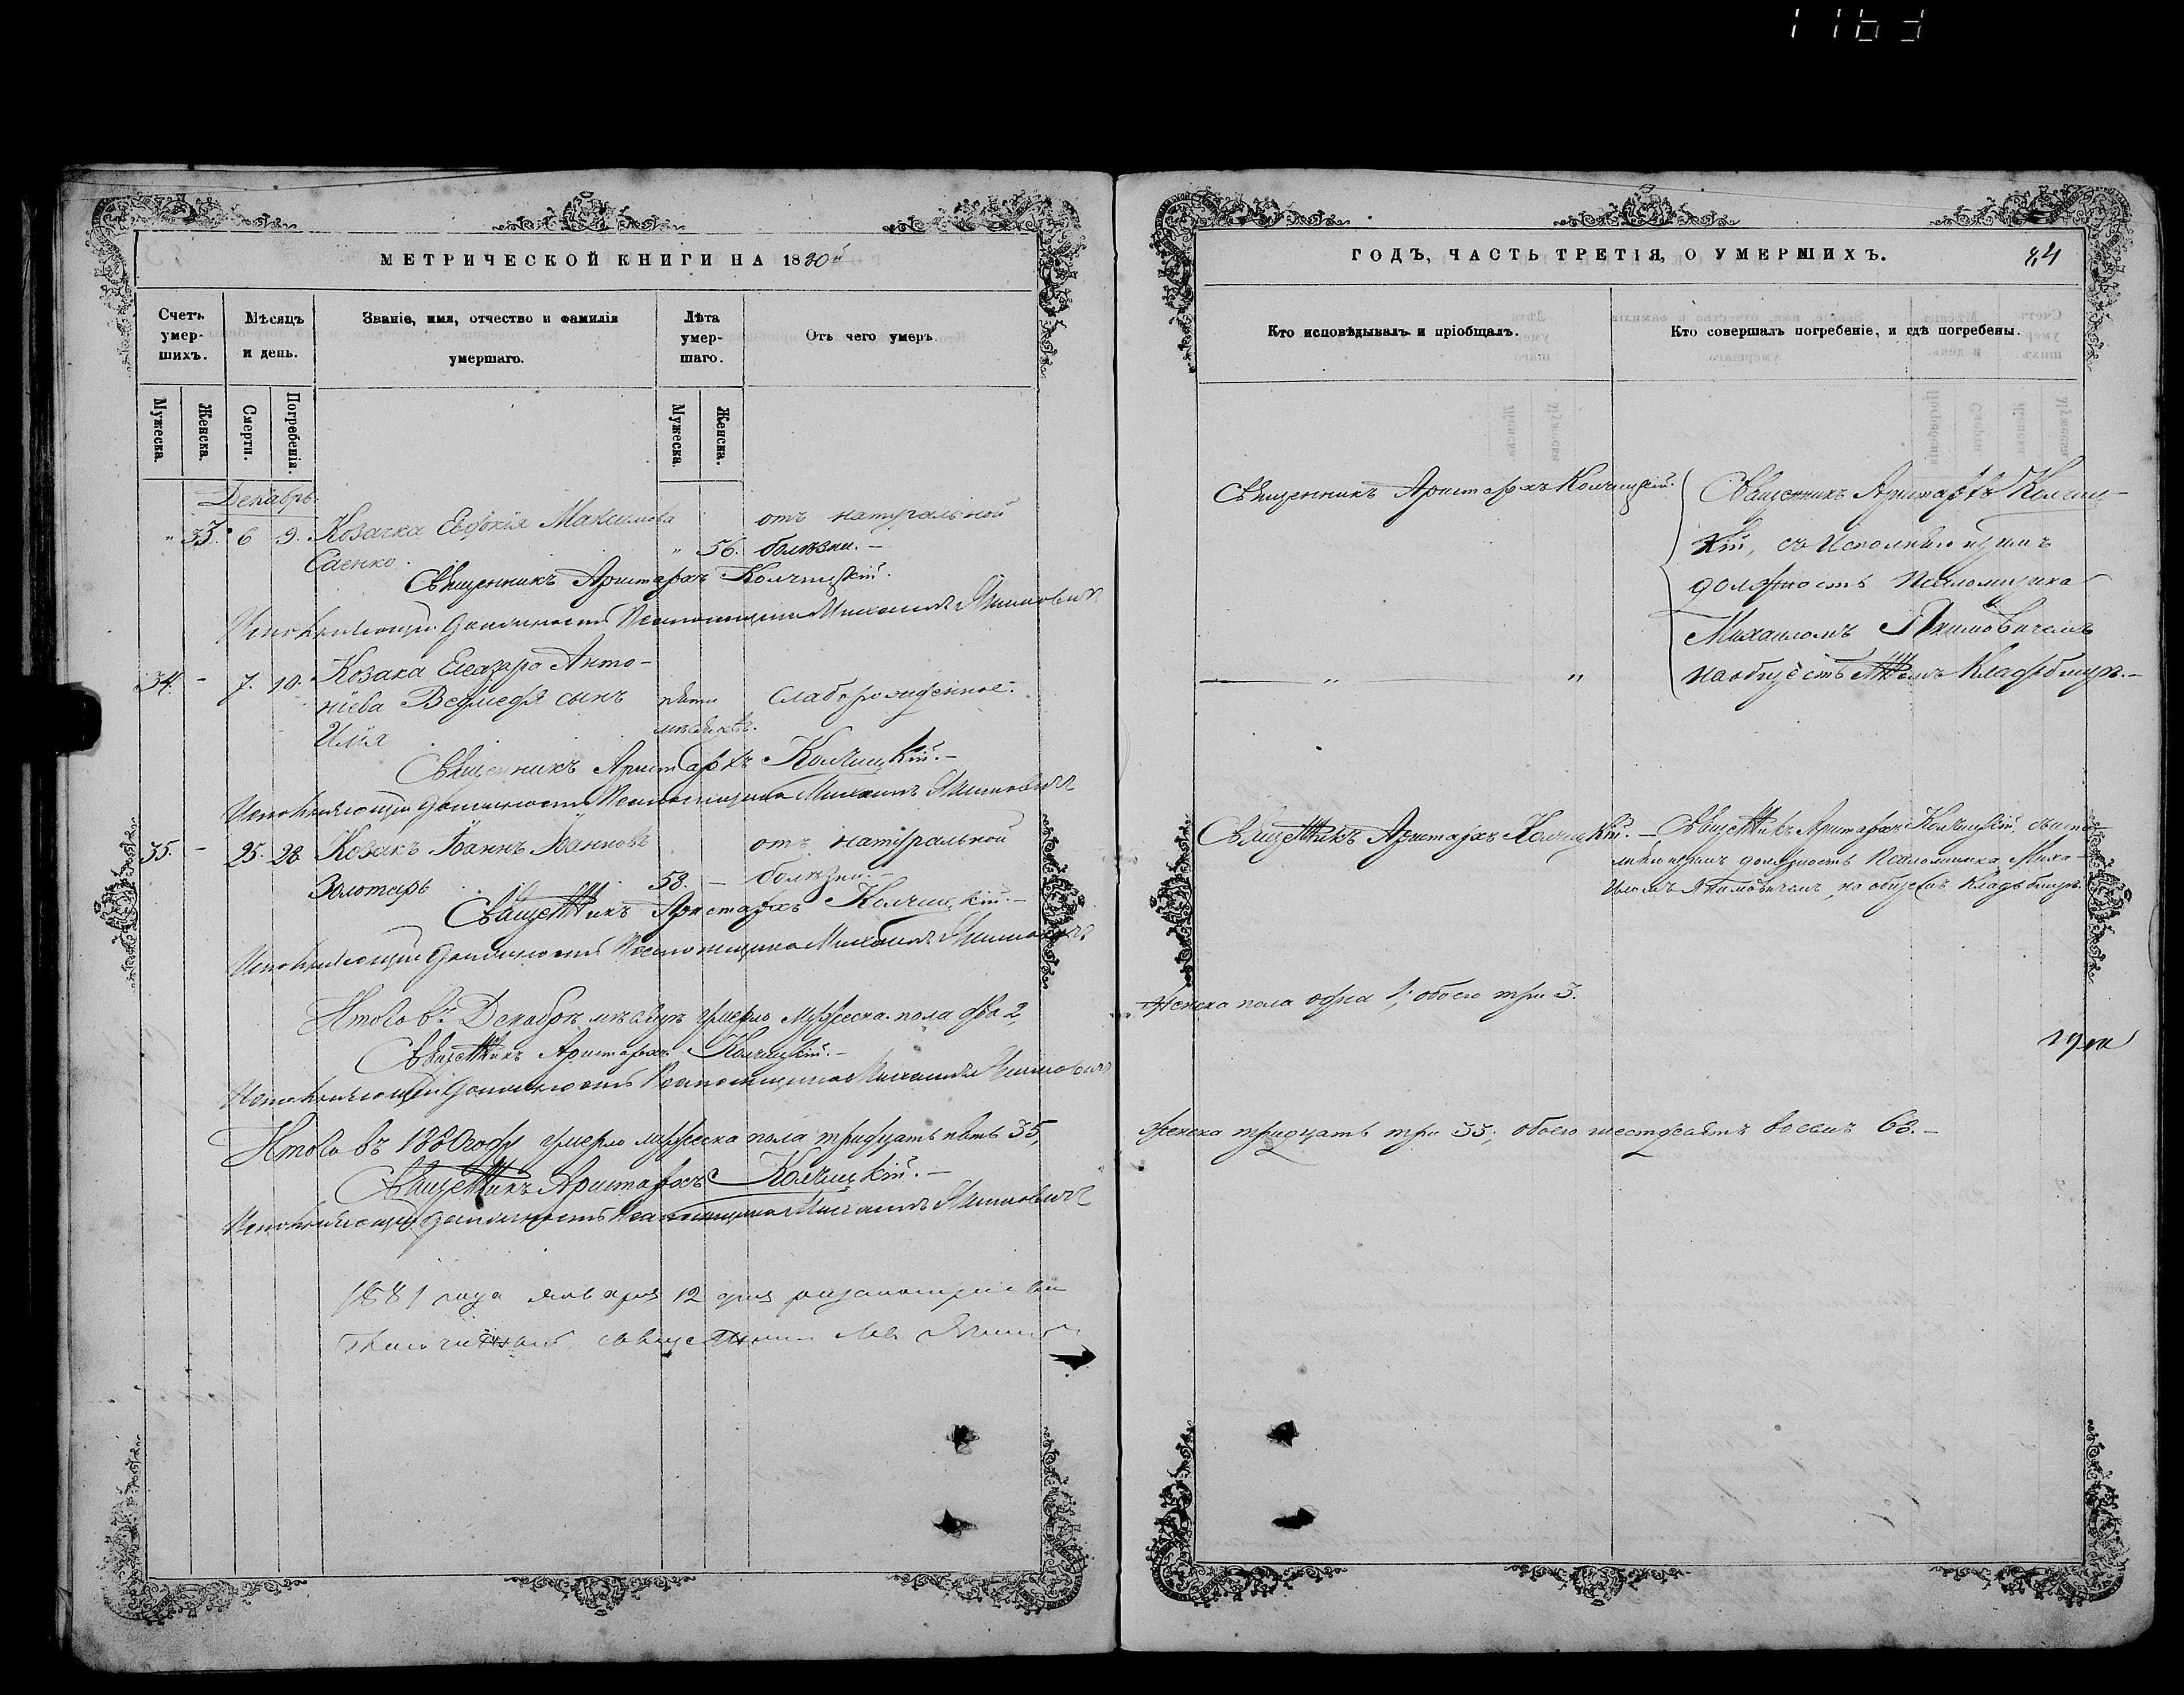 МЕТРИЧЕСКОЙ КНИГИ НА 1880й
Счетъ умер-шихъ.
Мѣсяцъ и день.
Званіе, имя, отчество и фамилія умершаго.
Лѣта умер-шаго.
Отъ чего умеръ.
Мужеска.
Женска.
Смерти.
Погребенія.
Мужеска.
Женска.
Декабрь.
" 33. 6 9. Козачка Евдокія Максимова
Саенко. " 56. отъ натуральной
болѣзни.-
Священникъ Аристархъ Колчицкій.
Исполняющій должность Псаломщика Михаилъ Якимовичъ
34. - 7. 10. Козака Елеазара Анто-
ніева Ведмедя сынъ
Илія
пяти
мѣсяцевъ. Слаборожденное.
Священникъ Аристархъ Колчицкій.-
Исполняющій должность Псаломщика Михаилъ Якимовичъ
35. - 25. 28. Козакъ Іоаннъ Іоанновъ
Золотарь 58. - отъ натуральной
болѣзни.-
Священникъ Аристархъ Колчицкій.-
Исполняющій должность Псаломщика Михаилъ Якимовичъ
Итого въ Декабрѣ мѣсяцѣ умерло мужеска пола два 2,
Священникъ Аристархъ Колчицкій.-
Исполняющій должность Псаломщика Михаилъ Якимовичъ
Итого въ 1880 году умерло мужеска пола тридцать пять 35,
Священникъ Аристархъ Колчицкій.-
Исполняющій должность Псаломщика Михаилъ Якимовичъ
1881 года января 12 дня
Благочинный священникъ
ГОДЪ, ЧАСТЬ ТРЕТІЯ, О УМЕРШИХЪ.
84
Кто исповѣдывалъ и пріобщалъ.
Кто совершалъ погребеніе, и гдѣ погребены.
Священникъ Аристархъ Колчицкій.
Священникъ Аристархъ Колчиц-
кій, съ Исполняющимъ
должность Псаломщика
Михаиломъ Якимовичемъ
на общественномъ кладбищѣ.-
" "
Священникъ Аристархъ Колчицкій.-
Священникъ Аристархъ Колчицкій, съ испо
лняющимъ должность Псаломщика Миха-
иломъ Якимовичемъ, на общемъ кладбищѣ.
женска пола одна 1; обоего три 3.
женска тридцать три 33; обоего шестдесятъ восемь 68.-